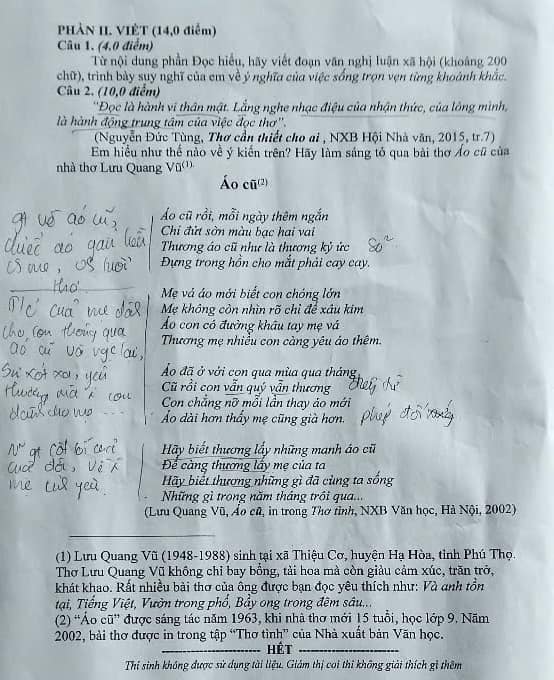 PHẦN II. VIẾT (14,0 điểm)
Câu 1. (4,0 điểm)
Từ nội dung phần Đọc hiểu, hãy viết đoạn văn nghị luận xã hội (khoảng 200
chữ), trình bày suy nghĩ của em về ý nghĩa của việc sống trọn vẹn từng khoảnh khắc.
Câu 2. (10,0 điểm)
"Đọc là hành vi thân mật. Lắng nghe nhạc điệu của nhận thức, của lòng mình,
là hành động trung tâm của việc đọc thơ".
(Nguyễn Đức Tùng, Thơ cần thiết cho ai , NXB Hội Nhà văn, 2015, tr.7)
Em hiểu như thế nào về ý kiến trên? Hãy làm sáng tỏ qua bài thơ Áo cũ của
nhà thơ Lưu Quang Vũ(1).
Áo cũ(2)
Áo cũ rồi, mỗi ngày thêm ngắn
Chỉ đứt sờn màu bạc hai vai
Thương áo cũ như là thương ký ức
Đựng trong hồn cho mắt phải cay cay.
về áo cũ,
chiếc áo gắn liền
mẹ,
thơ
Mẹ vá áo mới biết con chóng lớn
Mẹ không còn nhìn rõ chỉ để xâu kim
Áo con có đường khâu tay mẹ vá
Thương mẹ nhiều con càng yêu áo thêm.
của mẹ
cho con thông qua
áo cũ và
Sự xót xa, yêu
thương mà con
dành cho mẹ ...
Áo đã ở với con qua mùa qua tháng
Cũ rồi con vẫn quý vẫn thương
Con chẳng nỡ mỗi lần thay áo mới
Áo dài hơn thấy mẹ cũng già hơn.
phép đối xứng
Hãy biết thương lấy những manh áo cũ
Để càng thương lấy mẹ của ta
Hãy biết thương những gì đã cùng ta sống
Những gì trong năm tháng trôi qua...
của đời, về
mẹ
(Lưu Quang Vũ, Áo cũ, in trong Thơ tình, NXB Văn học, Hà Nội, 2002)
(1) Lưu Quang Vũ (1948-1988) sinh tại xã Thiệu Cơ, huyện Hạ Hòa, tỉnh Phú Thọ.
Thơ Lưu Quang Vũ không chỉ bay bổng, tài hoa mà còn giàu cảm xúc, trăn trở,
khát khao. Rất nhiều bài thơ của ông được bạn đọc yêu thích như: Và anh tồn
tại, Tiếng Việt, Vườn trong phố, Bầy ong trong đêm sâu...
(2) "Áo cũ" được sáng tác năm 1963, khi nhà thơ mới 15 tuổi, học lớp 9. Năm
2002, bài thơ được in trong tập "Thơ tình" của Nhà xuất bản Văn học.
HẾT
Thí sinh không được sử dụng tài liệu. Giám thị coi thi không giải thích gì thêm